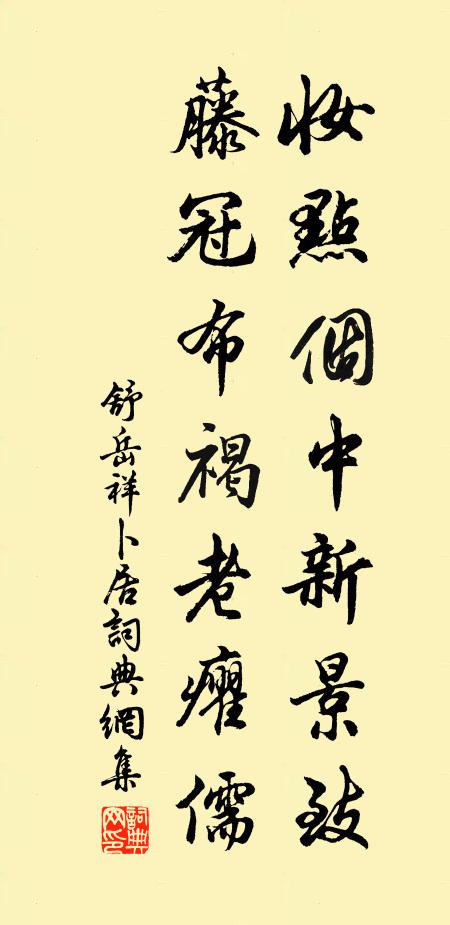 妝點個中新景致
藤冠布褐老癯儒
舒岳祥卜居詞典網集
詞典网印